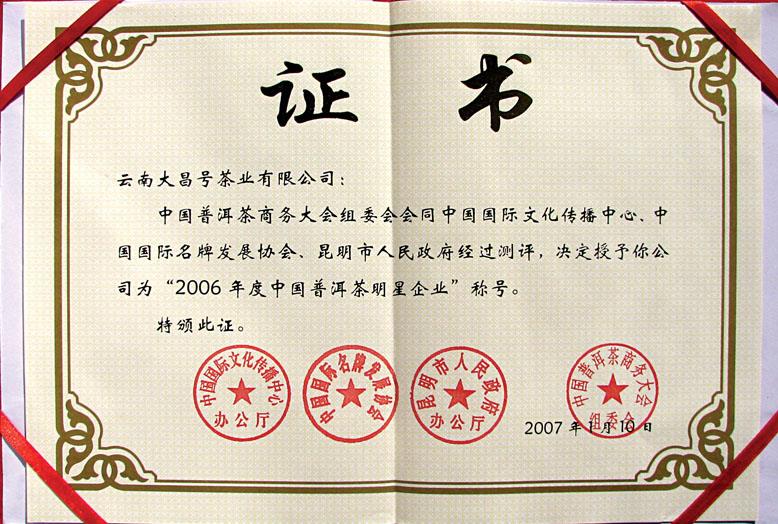 证 书
云南大昌号茶业有限公司：
中国普洱茶商务大会组委会会同中国国际文化传播中心、中
国国际名牌发展协会、昆明市人民政府经过测评，决定授予你公
司为“2006 年度中国普洱茶明星企业”称号。
特颁此证。
中国国际文化传播中心
办公厅
中国国际名牌发展协会
昆明市人民政府
办公厅
中国普洱茶商务大会
组委会
2007 年 1 月 10 日